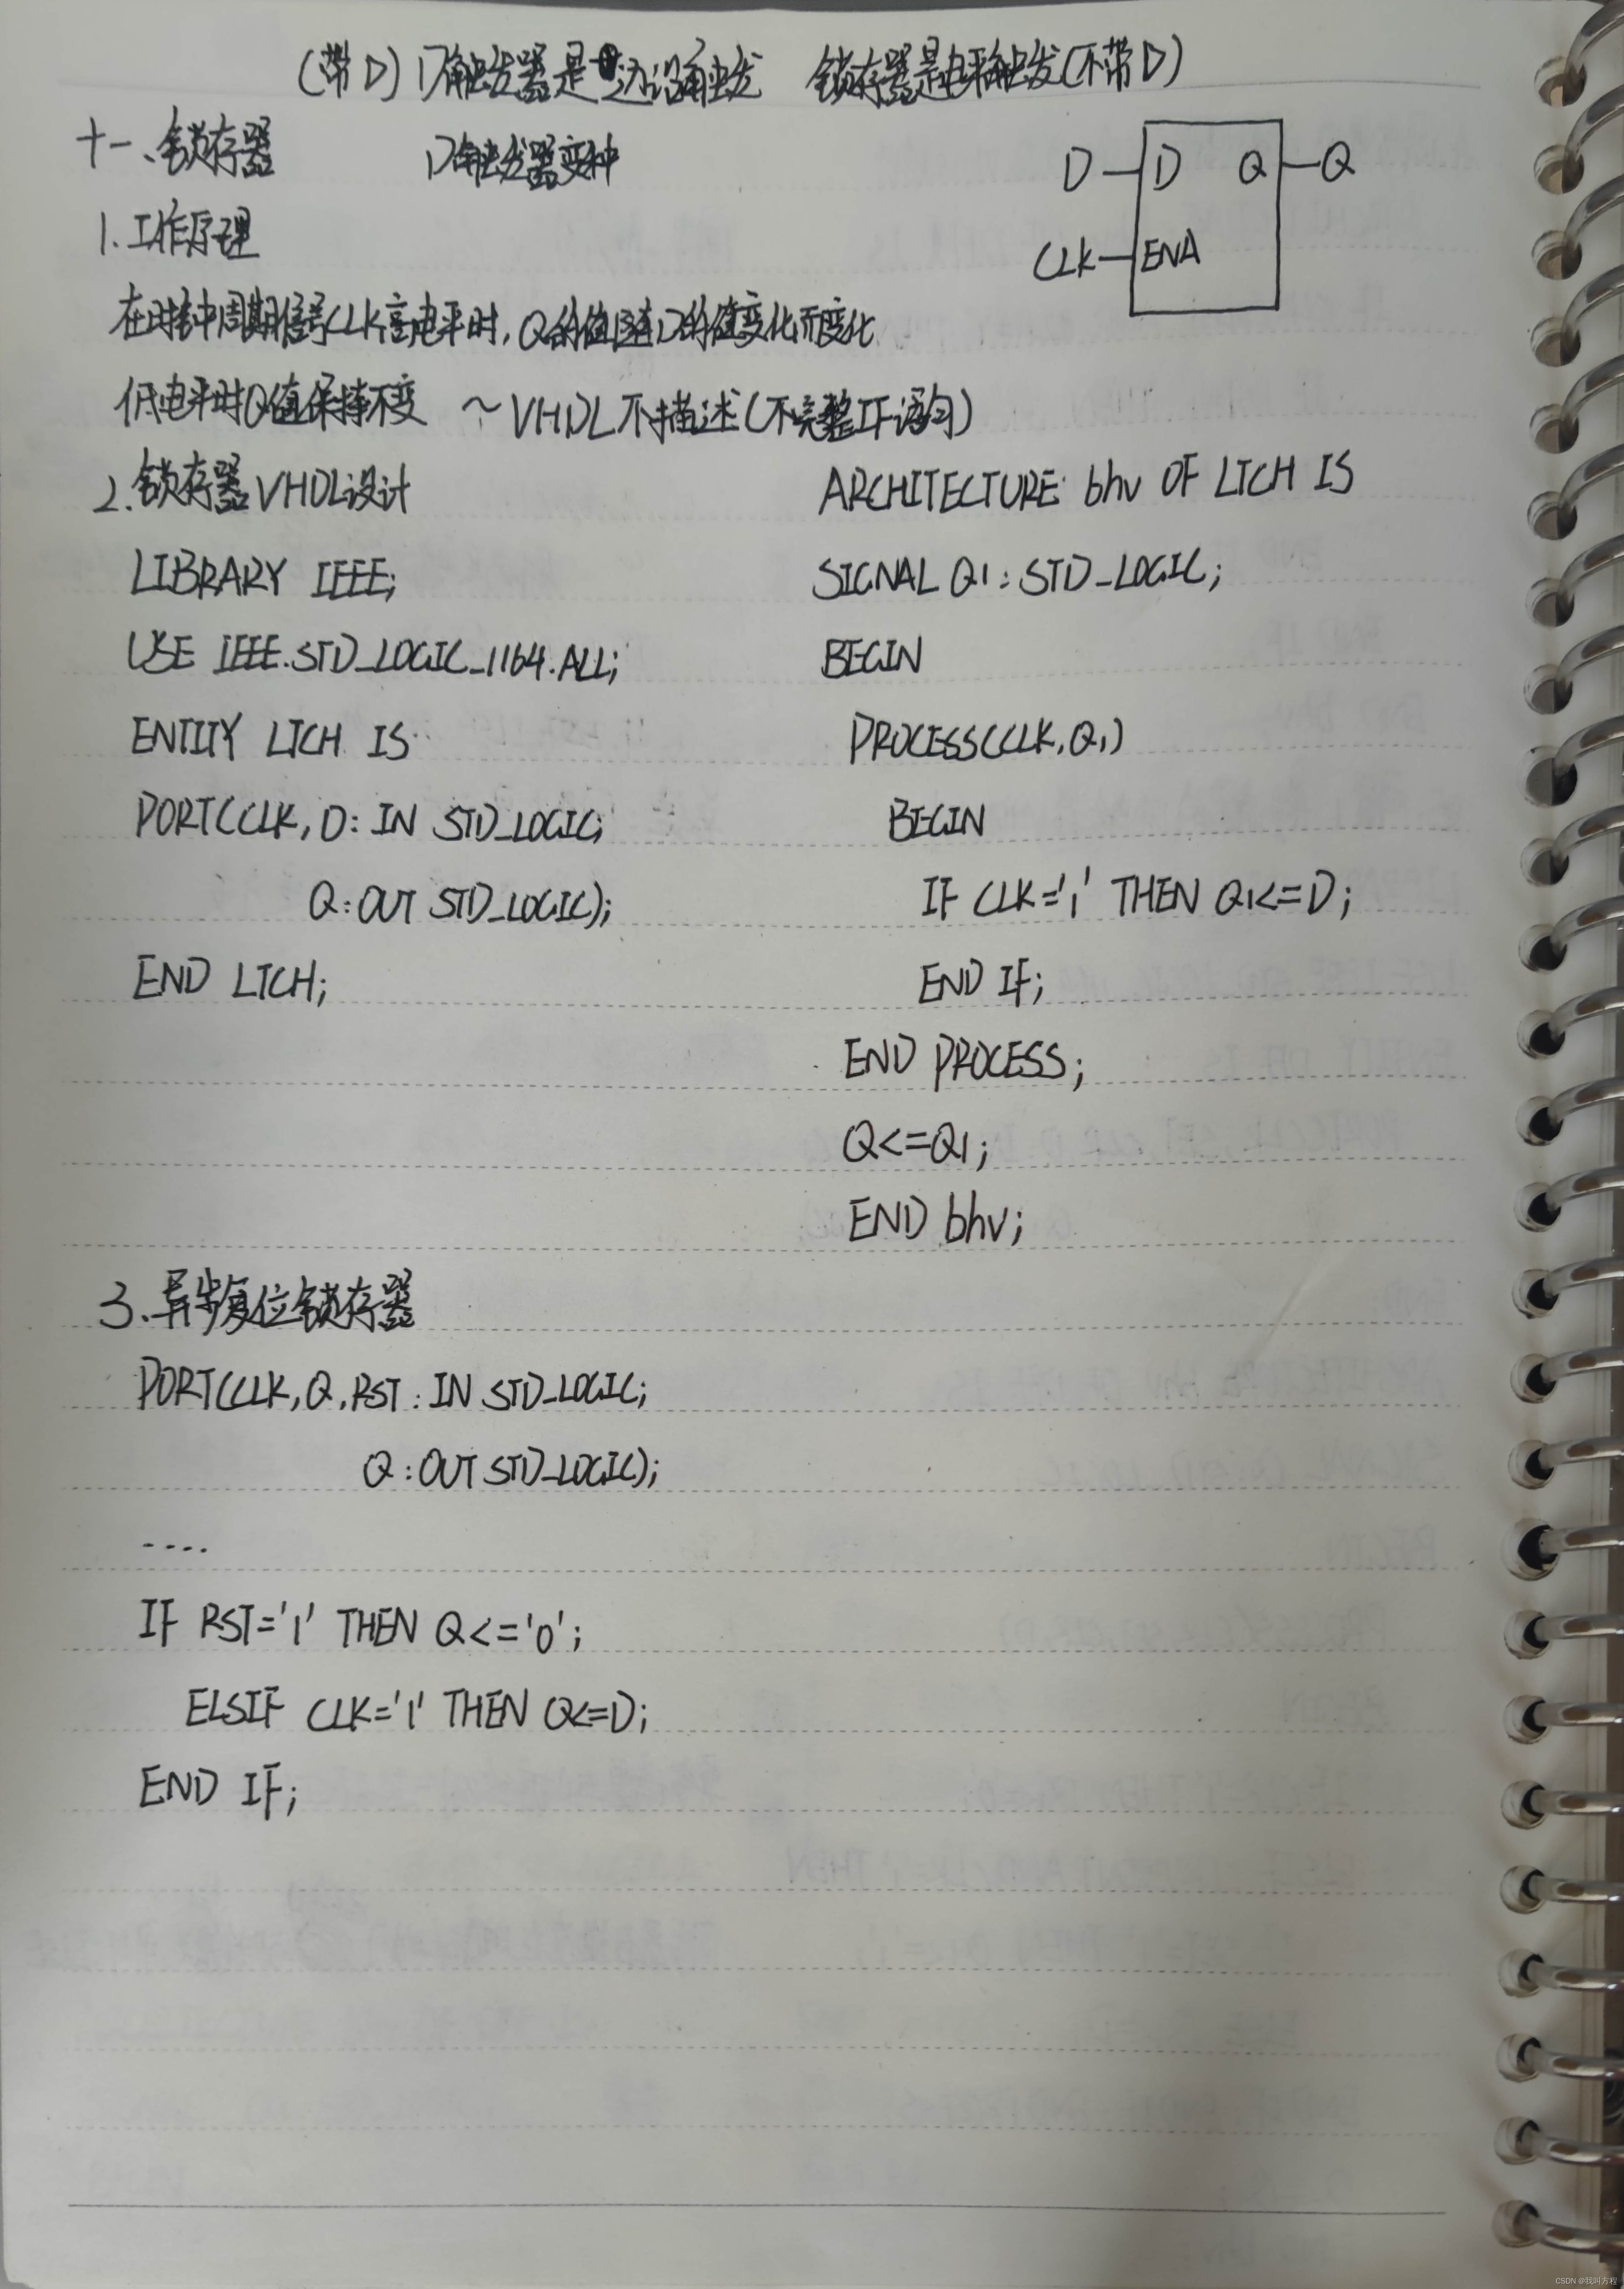 (带D) D触发器是边沿触发 锁存器是电平触发(不带D)
十一、锁存器 D触发器变种
D D Q Q
CLK ENA
1.工作原理
在时钟周期信号CLK高电平时,Q的值随D的值变化而变化
低电平时Q值保持不变 ~VHDL不描述(不完整IF语句)
2.锁存器VHDL设计
LIBRARY IEEE;
USE IEEE.STD_LOGIC_1164.ALL;
ENTITY LTCH IS
PORT(CLK,D:IN STD_LOGIC;
Q:OUT STD_LOGIC);
END LTCH;
ARCHITECTURE bhv OF LTCH IS
SIGNAL Q1:STD_LOGIC;
BEGIN
PROCESS(CLK,Q1)
BEGIN
IF CLK='1' THEN Q1<=D;
END IF;
END PROCESS;
Q<=Q1;
END bhv;
3.异步复位锁存器
PORT(CLK,Q,RST:IN STD_LOGIC;
Q:OUT STD_LOGIC);
....
IF RST='1' THEN Q<='0';
ELSIF CLK='1' THEN Q<=D;
END IF;
CSDN @我叫方程